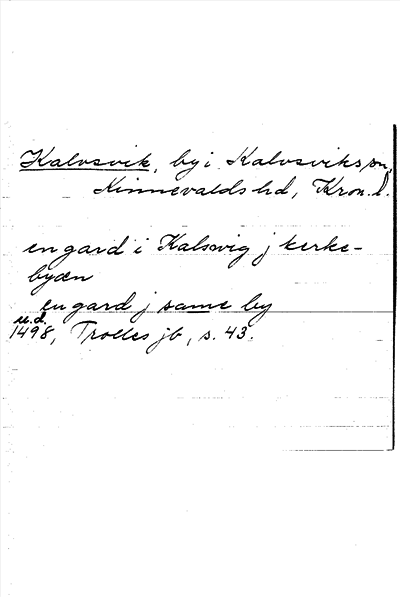 Kalvsvik, by i Kalvsviks sn,
Kinnevalds hd, Kron. l.
en gard i Kalswig j kerke-
byæn
en gard j same by
u.d.
1498, Trolles jb, s. 43.